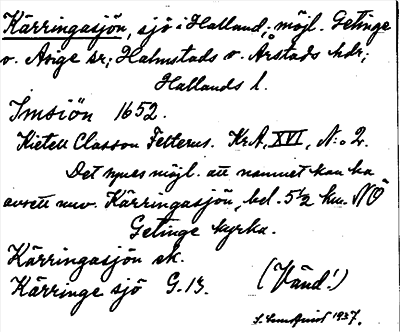 Kärringasjön, sjö i Halland, möjl. Getinge
o. Årige sr; Halmstads o. Årstads hdr;
Hallands l.
Imsiön 1652.
Kietell Classon Felterus. KrA, XVI, N:o 2.
Det synes möjl. att namnet kan ha
avsett nuv. Kärringasjön, bel. 5½ km. NÖ
Getinge kyrka.
Kärringasjön ek.
Kärringe sjö G.13.
(Vänd!)
1937.